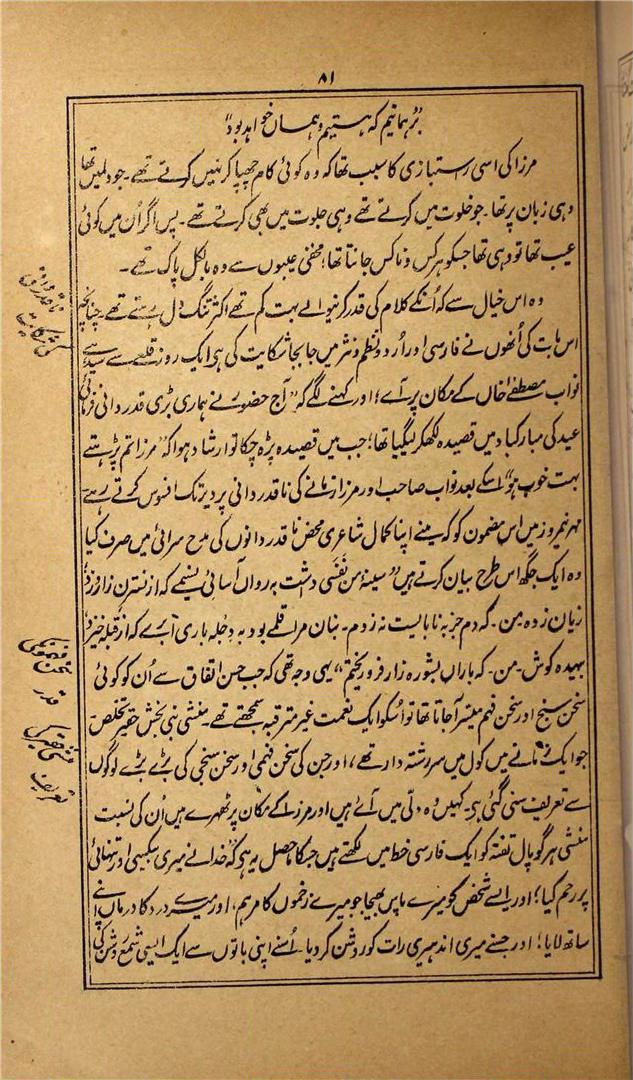 ۸۱
”بر ہمانیم کہ ہستیم و ہماں خواہد بود“
مرزا کی اسی راستبازی کا سبب تھا کہ وہ کوئی کام چھپا کر نہیں کرتے تھے۔ جو دلمیں تھا
وہی زبان پر تھا۔ جو خلوت میں کرتے تھے وہی جلوت میں بھی کرتے تھے۔ پس اگر اُن میں کوئی
عیب تھا تو وہی تھا جسکو ہر کس و ناکس جانتا تھا؛ مخفی عیبوں سے وہ بالکل پاک تھے۔
وہ اس خیال سے کہ اُنکے کلام کی قدر کرنیوالے بہت کم تھے اکثر تنگ دل رہتے تھے۔ چنانچہ
اس بات کی اُنھوں نے فارسی اور اُردو نظم و نثر میں جابجا شکایت کی ہی ایک روز قلعے سے سیدھے
نواب مصطفےٰ خاں کے مکان پر آے؛ اور کہنے لگے کہ ”آج حضور نے ہماری بڑی قدردانی فرمائی
عید کی مبارکباد میں قصیدہ لکھکر لیگیا تھا؛ جب میں قصیدہ پڑہ چکا تو ارشاد ہوا کہ ”مرزا تم پڑہتے
بہت خوب ہو“ اسکے بعد نواب صاحب اور مرزا زمانے کی ناقدردانی پر دیر تک افسوس کرتے رہے
مہر نیمروز میں اس مضمون کو کہ مینے اپنا کمال شاعری محض ناقدردانوں کی مدح سرائی میں صرف کیا
وہ ایک جگہ اس طرح بیان کرتے ہیں ”سینۂ من نَفَسی دہشت بہ رواں آسائی نسیمے کہ از نسترن زار وزد
زیان زدہ من۔ کہ دم جز بہ نابایست نہ زدم۔ بنان مرا قلمے بود بہ دجلہ باری آبرے کہ از قبلہ خیزد
بہیدہ کوش۔ من۔ کہ باراں بشورہ زار فرو ریختم“ یہی وجہ تھی کہ جب حسن اتفاق سے اُن کو کوئی
سخن سنج اور سخن فہم میسر آجاتا تھا تو اُسکو ایک نعمت غیر مترقبہ سمجھتے تھے۔ منشی نبی بخش حقیر تخلص
جو ایک زمانے میں کول میں سررشتہ دار تھے، اور جن کی سخن فہمی اور سخن سنجی کی بڑے بڑے لوگوں
سے تعریف سنی گئی ہی۔ کہیں وُہ دلّی میں آئے ہیں اور مرزا کے مکان پر ٹھہرے ہیں اُن کی نسبت
منشی ہرگوپال تفتہ کو ایک فارسی خط میں لکھتے ہیں جسکا حاصل یہ ہی کہ ”خدا نے میری بیکسی اور تنہائی
پر رحم کیا؛ اور ایسے شخص کو میرے پاس بھیجا جو میرے زخموں کا مرہم، اور میرے درد کا درماں اپنے
ساتھ لایا؛ اور جسنے میری اندھیری رات کو روشن کر دیا۔ اُسنے اپنی باتوں سے ایک ایسی شمع روشن کی
ناقدردانی
کی شکایت
سخن فہموں کی
قدر
منشی حقیر کی
تعریف